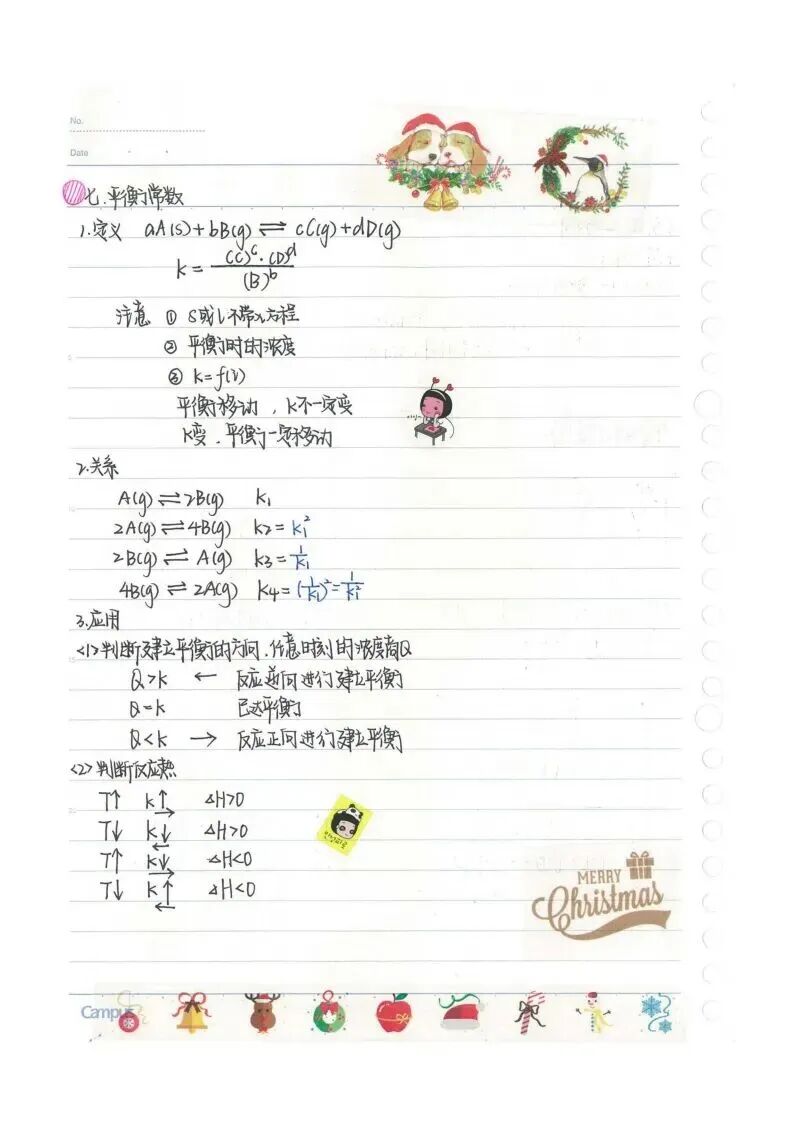 No.
Date
七.平衡常数
1.定义 aA(s)+bB(g) ⇌ cC(g)+dD(g)
K = (C)^c·(D)^d / (B)^b
注意 ① S或l不带入方程
② 平衡时的浓度
③ K=f(T)
平衡移动，K不一定变
K变，平衡一定移动
2.关系
A(g) ⇌ 2B(g) K₁
2A(g) ⇌ 4B(g) K₂=K₁²
2B(g) ⇌ A(g) K₃=1/K₁
4B(g) ⇌ 2A(g) K₄=(1/K₁)²=1/K₁²
3.应用
<1>判断建立平衡的方向.任意时刻的浓度商Q
Q>K ← 反应逆向进行建立平衡
Q=K 已达平衡
Q<K → 反应正向进行建立平衡
<2>判断反应热
T↑ K↑ → ΔH>0
T↓ K↓ ← ΔH>0
T↑ K↓ → ΔH<0
T↓ K↑ ← ΔH<0
MERRY
Christmas
Campus